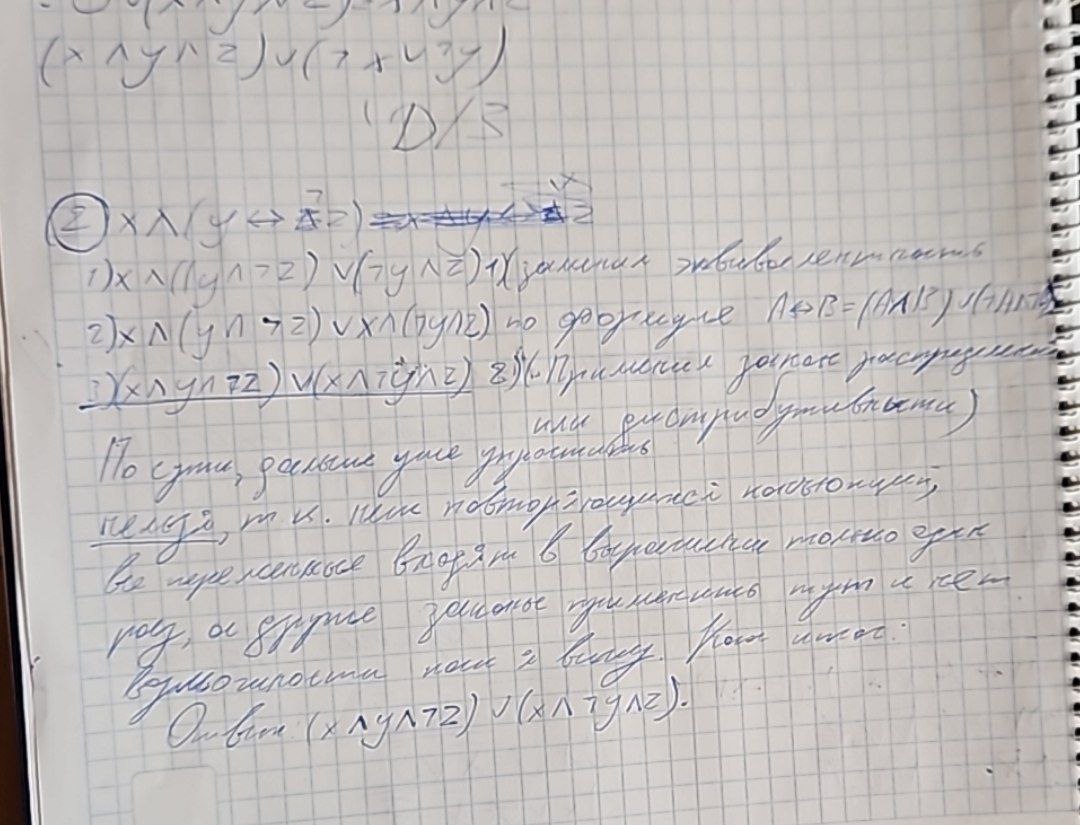 (x ∧ y ∧ z) ∨ (¬x ∨ ¬y)
D/З
2 x ∧ (y ↔ ¬z)
1) x ∧ ((y ∧ ¬z) ∨ (¬y ∧ z) 1)(заменил эквивалентность
2) x ∧ (y ∧ ¬z) ∨ x ∧ (¬y ∧ z) по формуле A ↔ B = (A ∧ B) ∨ (¬A ∧ ¬B)
3) (x ∧ y ∧ ¬z) ∨ (x ∧ ¬y ∧ z) 2)(Применил закон распределения
или дистрибутивности)
По сути, дальше уже упростить
нельзя, т.к. нет повторяющихся конъюнкций,
все переменные входят в выражение только один
раз, а другие законы применить тут и нет
возможности как я вижу. Как итог:
Ответ (x ∧ y ∧ ¬z) ∨ (x ∧ ¬y ∧ z).